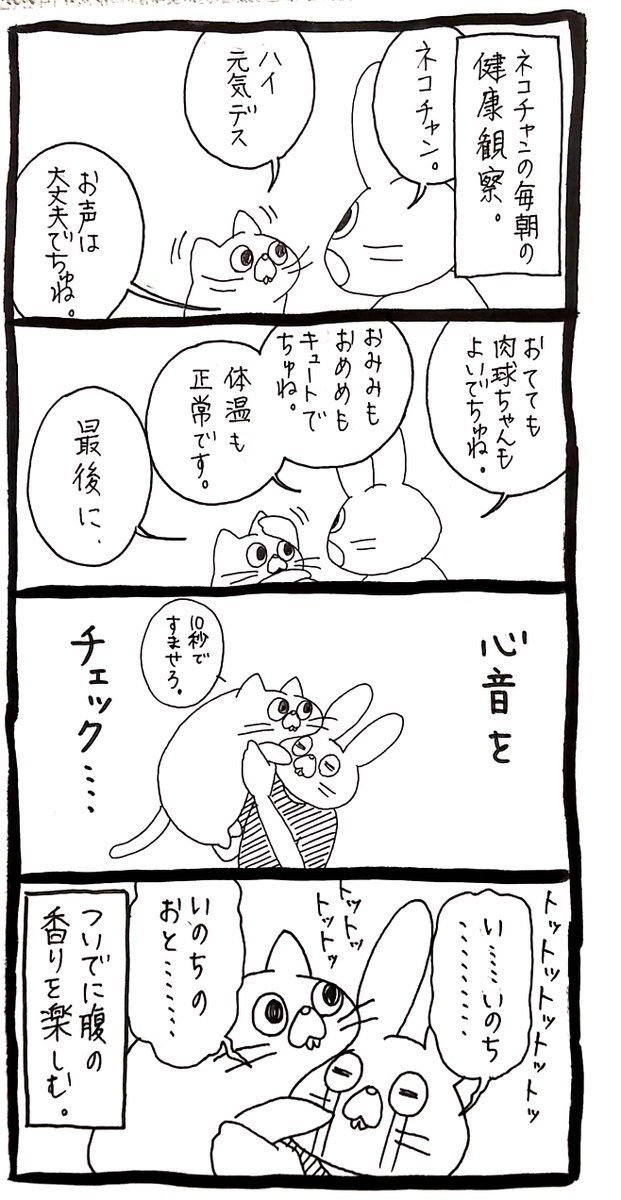 ネコチャンの毎朝の
健康観察。
ネコ
チャン。
ハイ
元気デス
お声は
大丈夫でちゅね。
おてても
肉球ちゃんも
よいでちゅね。
おみみも
おめめも
キュートで
ちゅね。
体温も
正常です。
最後に、
心音を
チェック‥‥
10秒で
すませろ。
トットットットットッ
い……いのち
………
トットッ
トットッ
いのちの
おと………
ついでに腹の
香りを楽しむ。